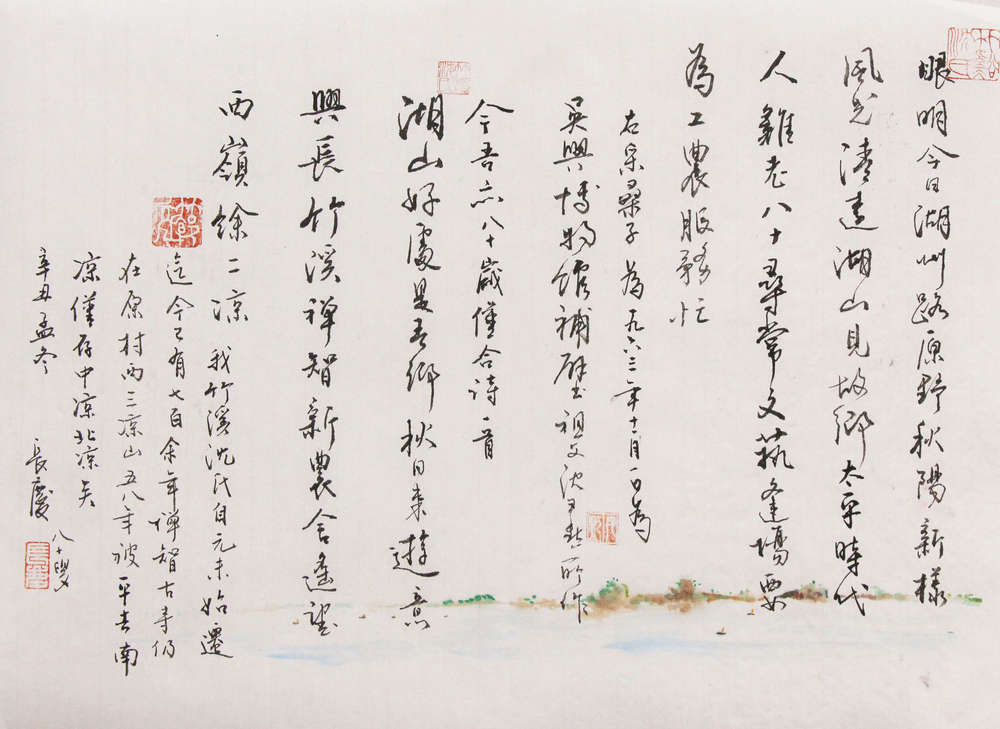 眼明今日湖州路原野秋陽新樣
風光清遠湖山見故鄉太平時代
人難老八十尋常文藝逢場要
為工農服務忙
右采桑子為一九六三年十一月一日為
吳興博物館補壁祖父沈尹默所作
今吾亦八十歲僅合詩一首
湖山好處是吾鄉秋日来遊意
興長竹溪禅智新農舍遙望
西嶺餘二凉
我竹溪沈氏自元末始遷
迄今已有七百余年禅智古寺仍
在原村西三凉山五八年被平去南
凉僅存中凉北凉矣
辛丑孟冬
長慶
八十叟